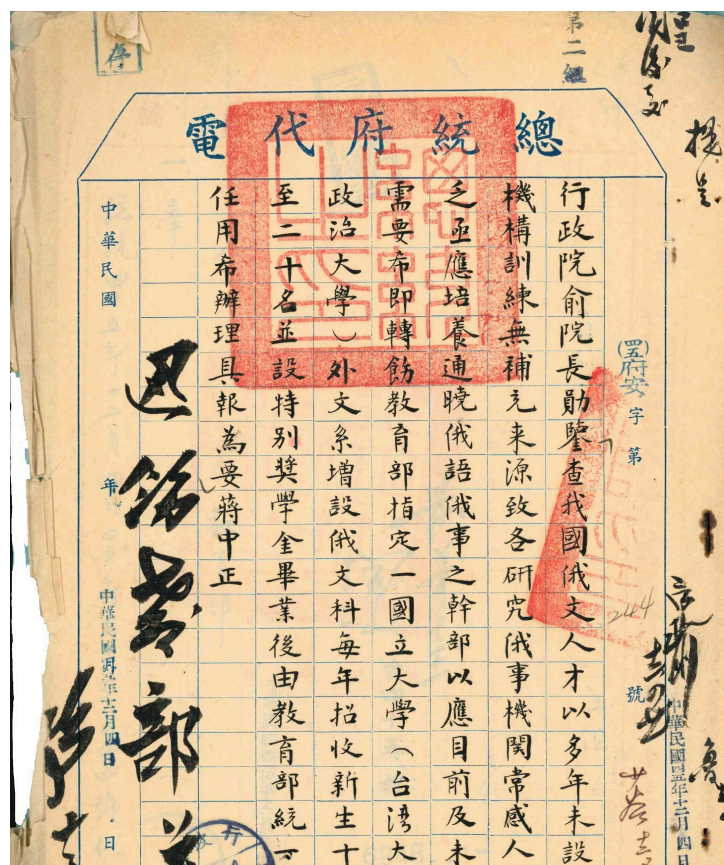 存
第二組
總統府代電
(四五)府安字第
244
號
中華民國四五年十二月四日
行政院俞院長勛鑒查我國俄文人才以多年未設
機構訓練無補充來源致各研究俄事機關常感人
乏亟應培養通曉俄語俄事之幹部以應目前及未
需要希即轉飭教育部指定一國立大學(台灣大
政治大學)外文系增設俄文科每年招收新生十
至二十名並設特別奬學金畢業後由教育部統一
任用希辦理具報為要蔣中正
迅飭教部
中華民國 年 日
中華民國四五年十二月四日